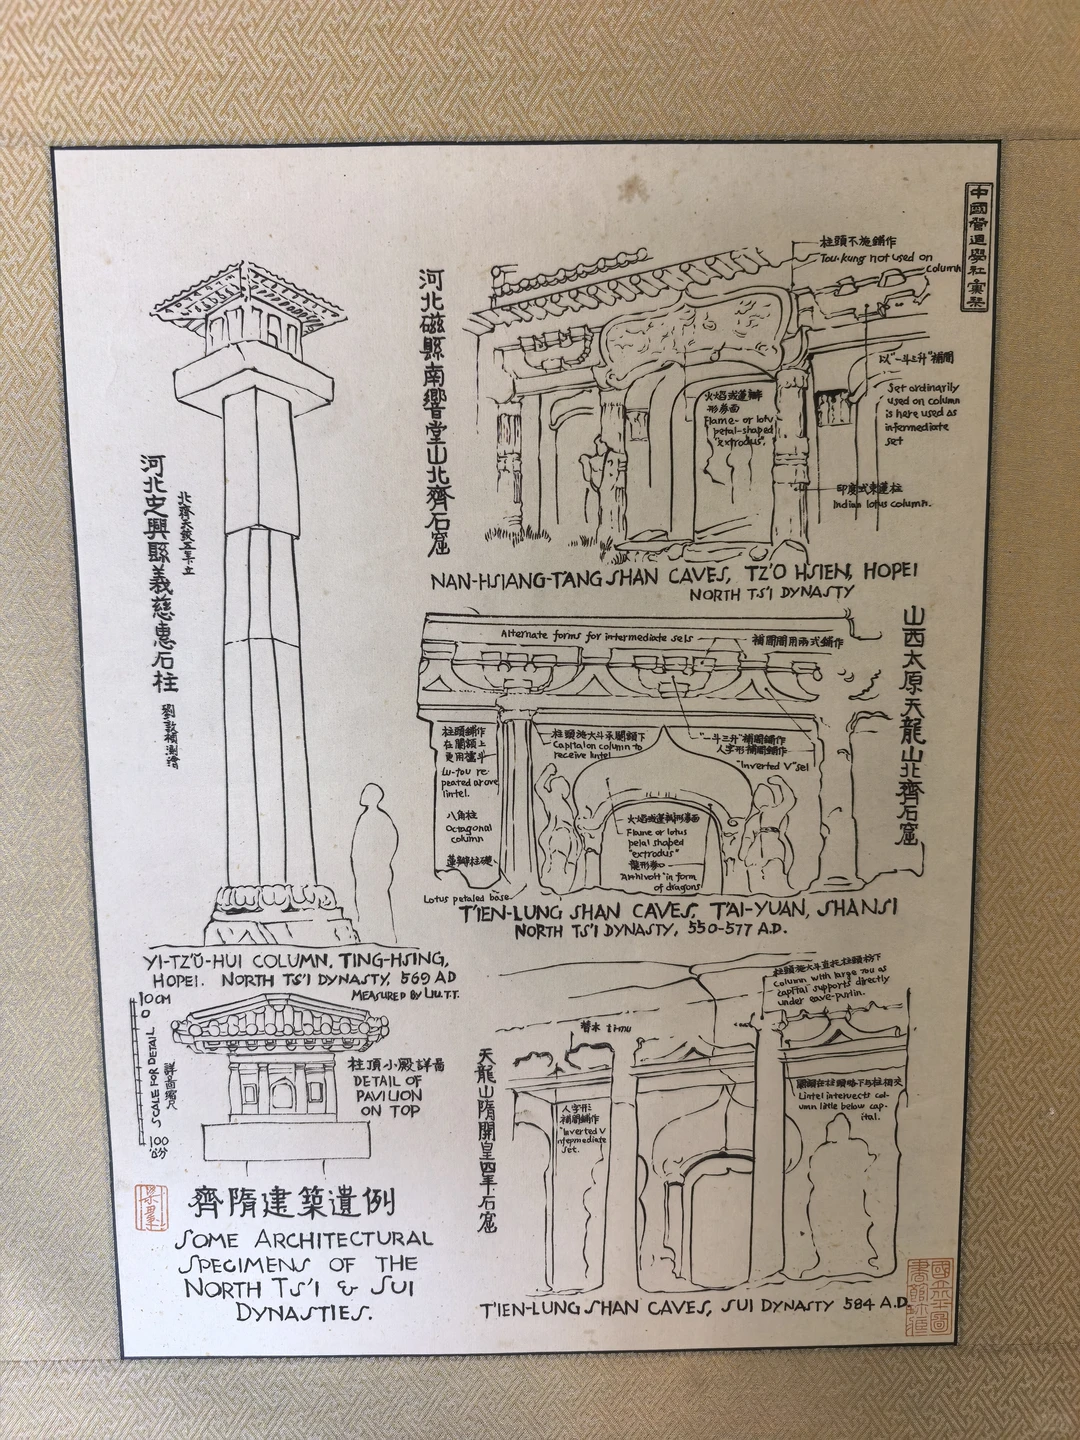 中國營造學社彙集
河北磁縣南響堂山北齊石窟
柱頭不施鋪作
Tou-kung not used on
column
以"一斗三升"補間
Set ordinarily
used on column
is here used as
intermediate
set
火焰或蓮瓣
形券面
Flame- or lotus
petal-shaped
"extrodus".
印度式束蓮柱
Indian lotus column.
NAN-HSIANG-T'ANG SHAN CAVES, TZ'O HSIEN, HOPEI
NORTH TS'I DYNASTY
河北定興縣義慈惠石柱
北齊天統五年立
劉敦楨測繪
YI-TZ'Ŭ-HUI COLUMN, TING-HSING,
HOPEI. NORTH TS'I DYNASTY, 569 AD
MEASURED BY LIU.T.T.
山西太原天龍山北齊石窟
Alternate forms for intermediate sets
補間間用兩式鋪作
柱頭鋪作
在闌額上
更用櫨斗
Lu-tou re-
peated above
lintel.
八角柱
Octagonal
column
蓮瓣柱礎
Lotus petaled base
柱頭施大斗承闌額下
Capital on column to
receive lintel
"一斗三升"補間鋪作
人字形補間鋪作
"Inverted V" set
火焰或蓮瓣形券面
Flame or lotus
petal shaped
"extrodus"
龍形券
"Arhivolt" in form
of dragons
T'IEN-LUNG SHAN CAVES, T'AI-YUAN, SHANSI
NORTH TS'I DYNASTY, 550-577 A.D.
10 CM
0
SCALE FOR DETAIL
詳圖縮尺
100
公分
柱頂小殿詳圖
DETAIL OF
PAVILION
ON TOP
天龍山隋開皇四年石窟
柱頭施大斗直托柱頭枋下
Column with large tou as
capital supports directly
under eave-purlin.
替木 ti-mu
人字形
補間鋪作
"Inverted V
intermediate
set.
闌額在柱頭略下與柱相交
Lintel intersects col-
umn little below cap-
ital.
T'IEN-LUNG SHAN CAVES, SUI DYNASTY 584 A.D.
齊隋建築遺例
SOME ARCHITECTURAL
SPECIMENS OF THE
NORTH TS'I & SUI
DYNASTIES.